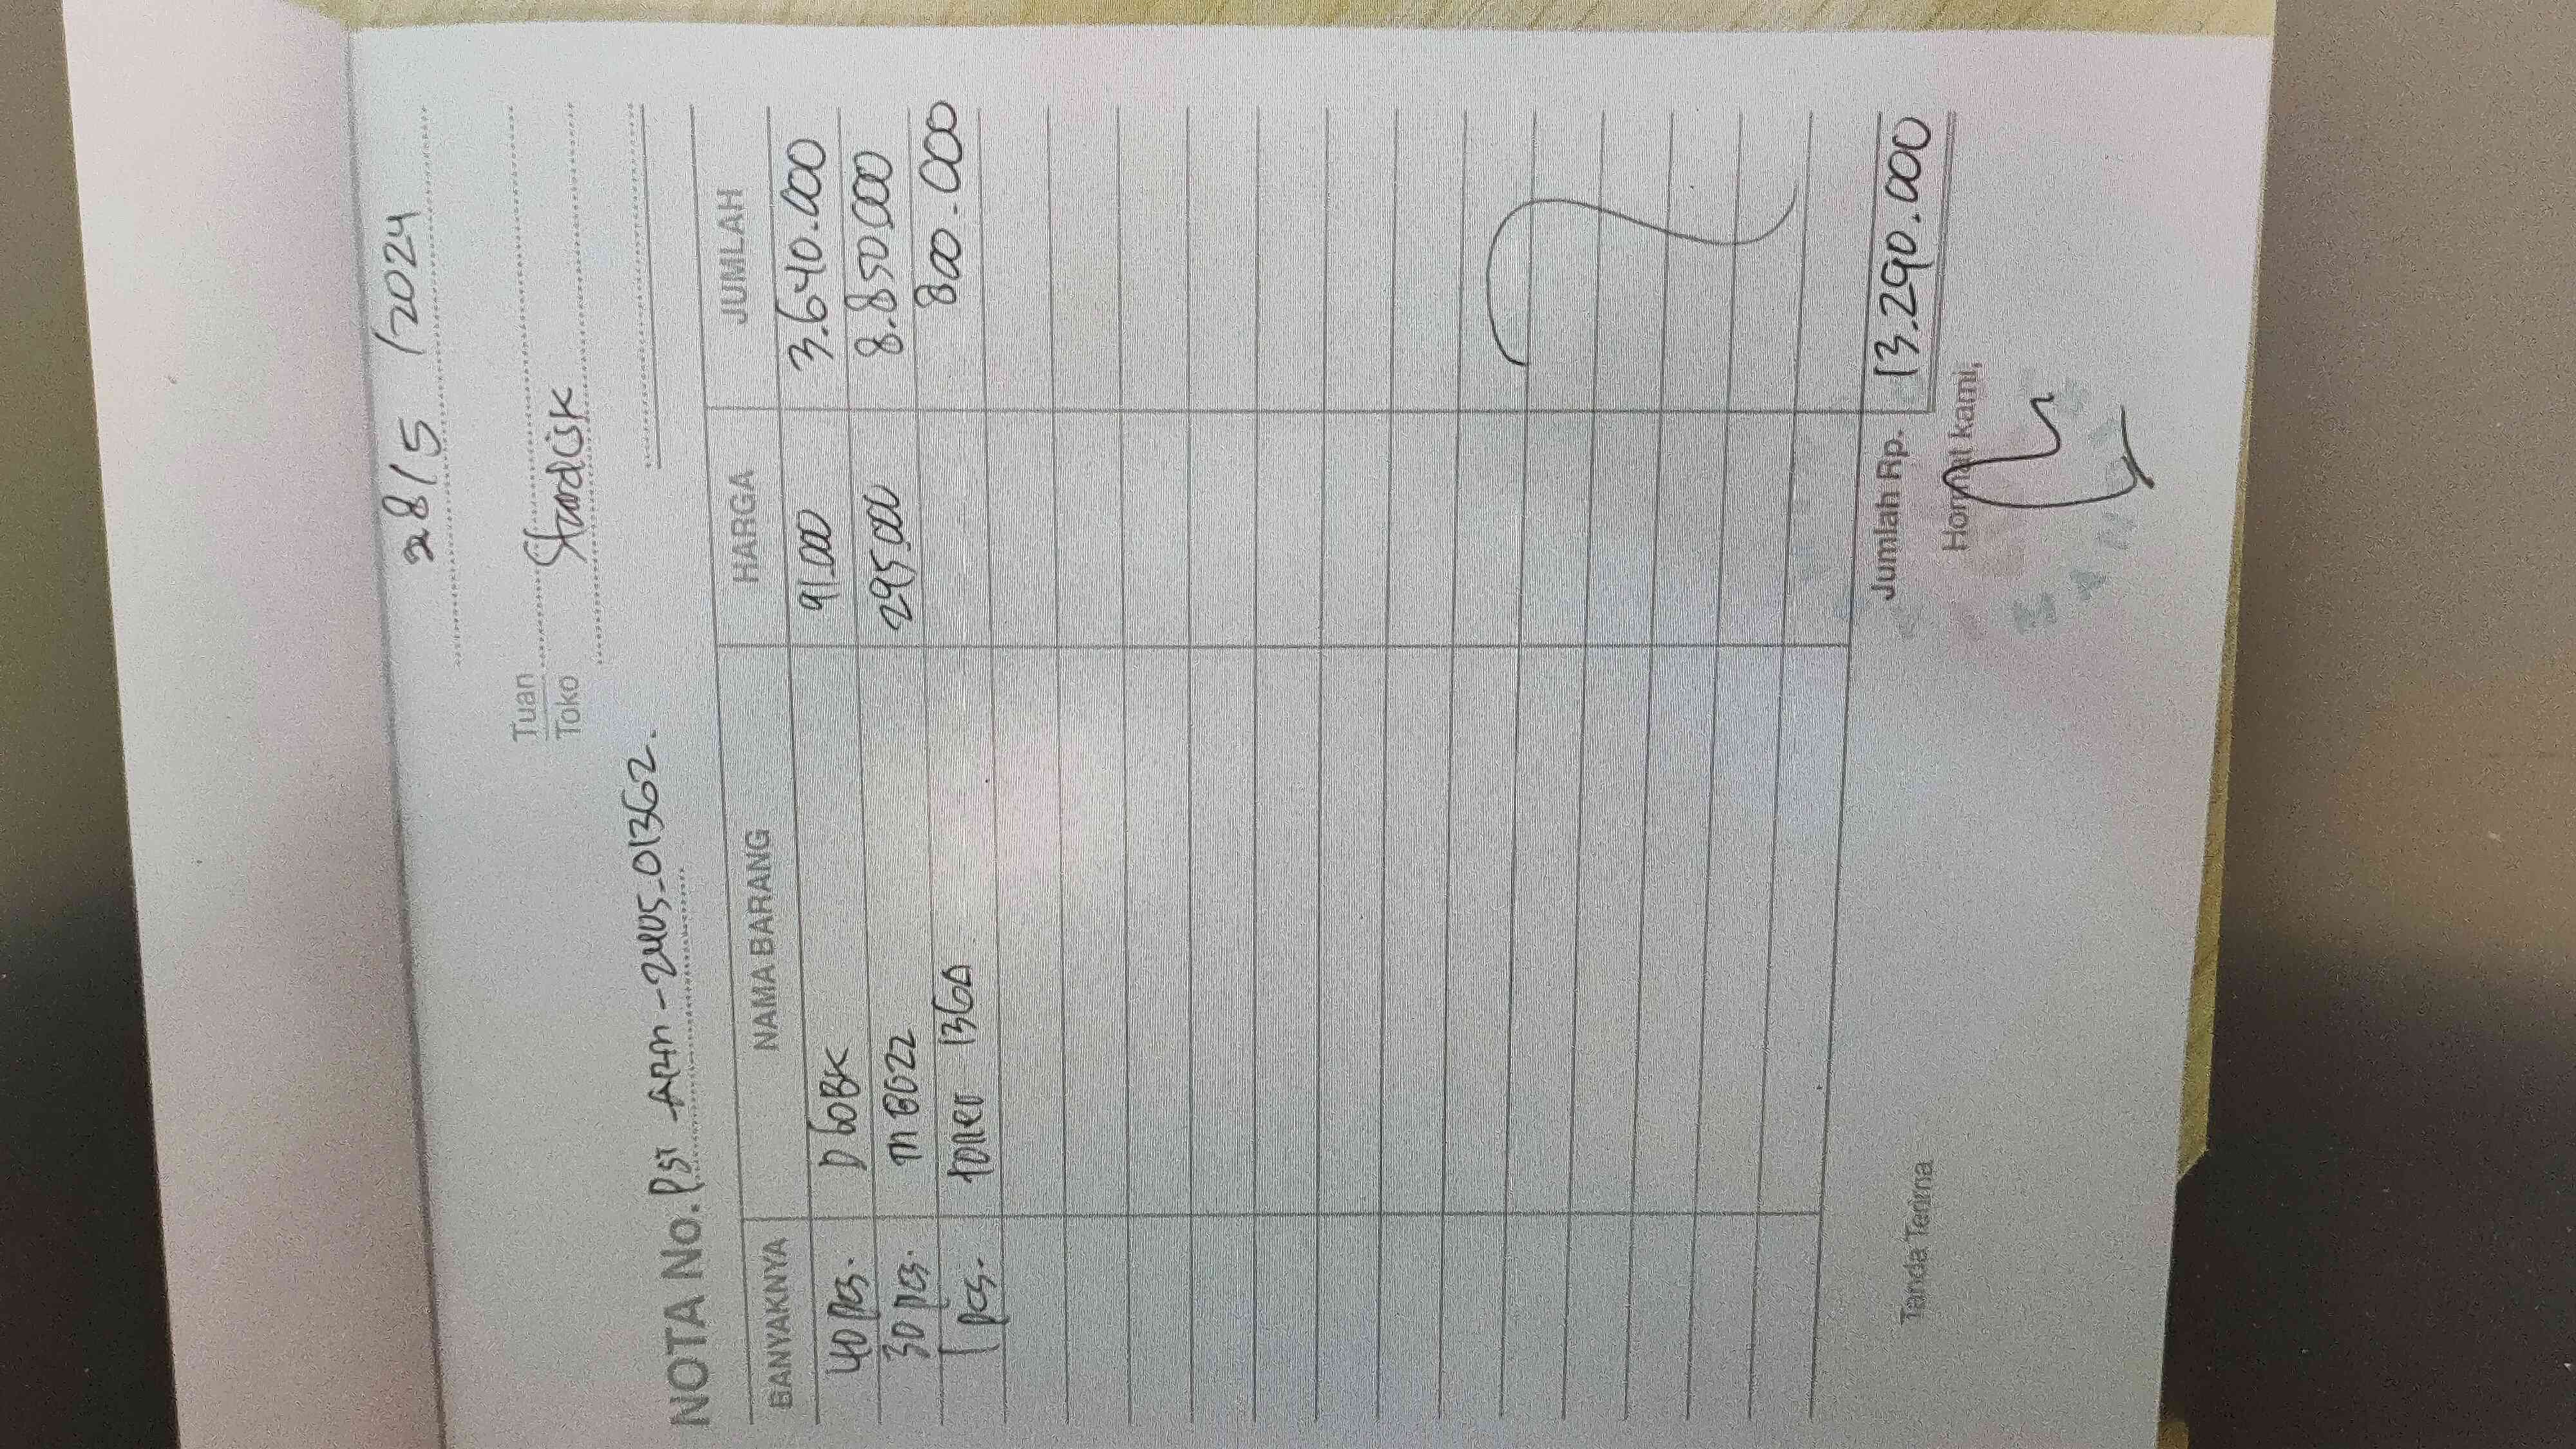 28/5 /2024
Tuan
Toko Stardisk
NOTA No. PST - 2405-01362.
BANYAKNYA NAMA BARANG HARGA JUMLAH
40 pcs. D60BK 91.000 3.640.000
30 pcs. MB022 295.000 8.850.000
1 pcs. toner 136A 800.000
Jumlah Rp. 13.290.000
Tanda Terima Hormat kami,